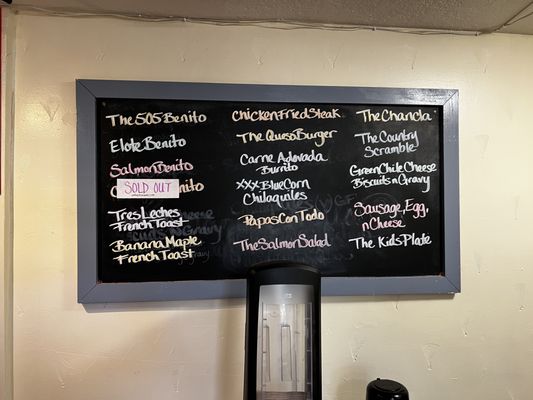 The 505 Benito
Elote Benito
Salmon Benito
SOLD OUT
Benito
Tres Leches
French Toast
Banana Maple
French Toast
Chicken Fried Steak
The Queso Burger
Carne Adovada
Burrito
XXX Blue Corn
Chilaquiles
Papas Con Todo
The Salmon Salad
The Chancla
The Country
Scramble
Green Chile Cheese
Biscuits n Gravy
Sausage, Egg,
n Cheese
The Kids Plate